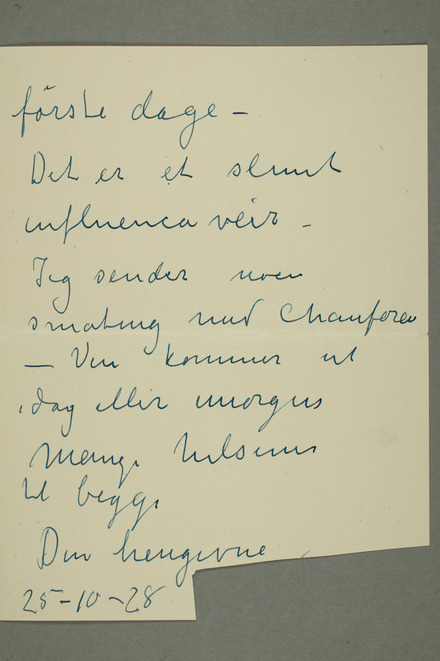 förste dage –
Det er et slemt
influenca veir –
Jeg sender noen
småting med Chauforen
– Vin kommer ut
idag eller imorgen
Mange hilsener
til begge
Din hengivne
25-10-28